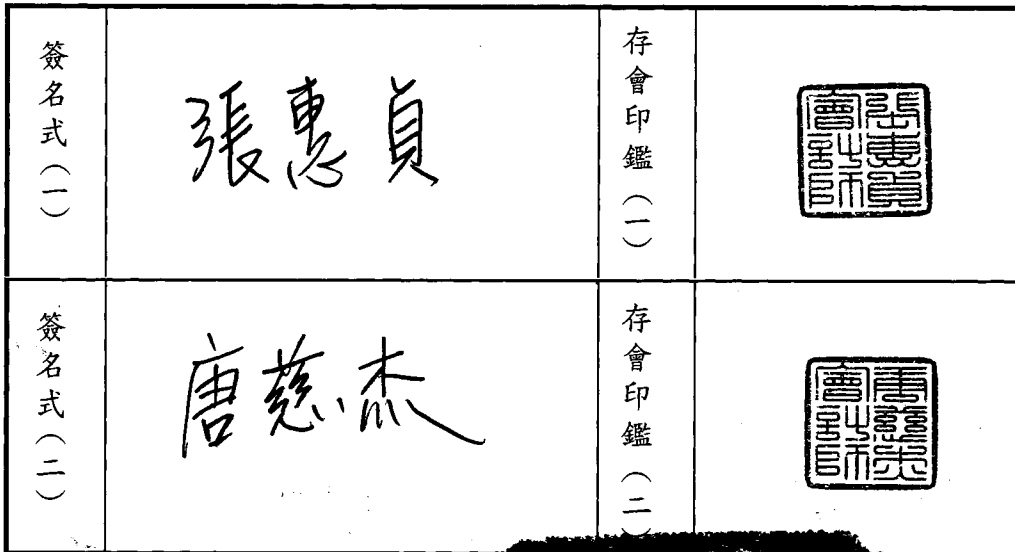 簽名式(一)
張惠貞
存會印鑑(一)
張惠貞
會計師
簽名式(二)
唐慈杰
存會印鑑(二)
唐慈杰
會計師